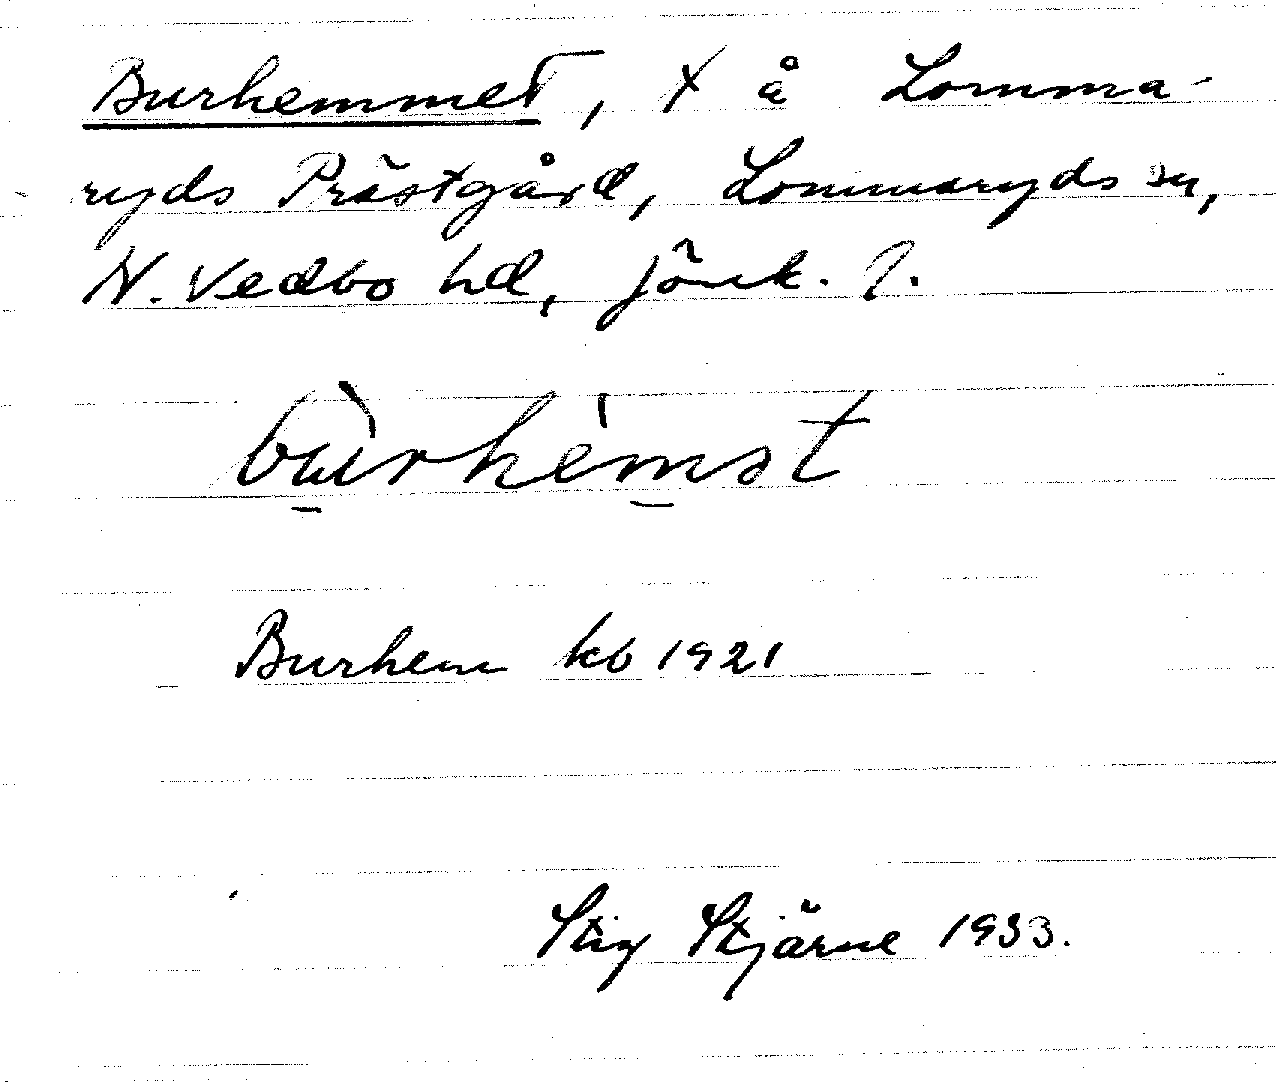 Burhemmet, x å Lomma-
ryds Prästgård, Lommaryds sn,
N. Vedbo hd, Jönk. l.
bùrhèmət
Burhem kb 1921
Stig Stjärne 1933.